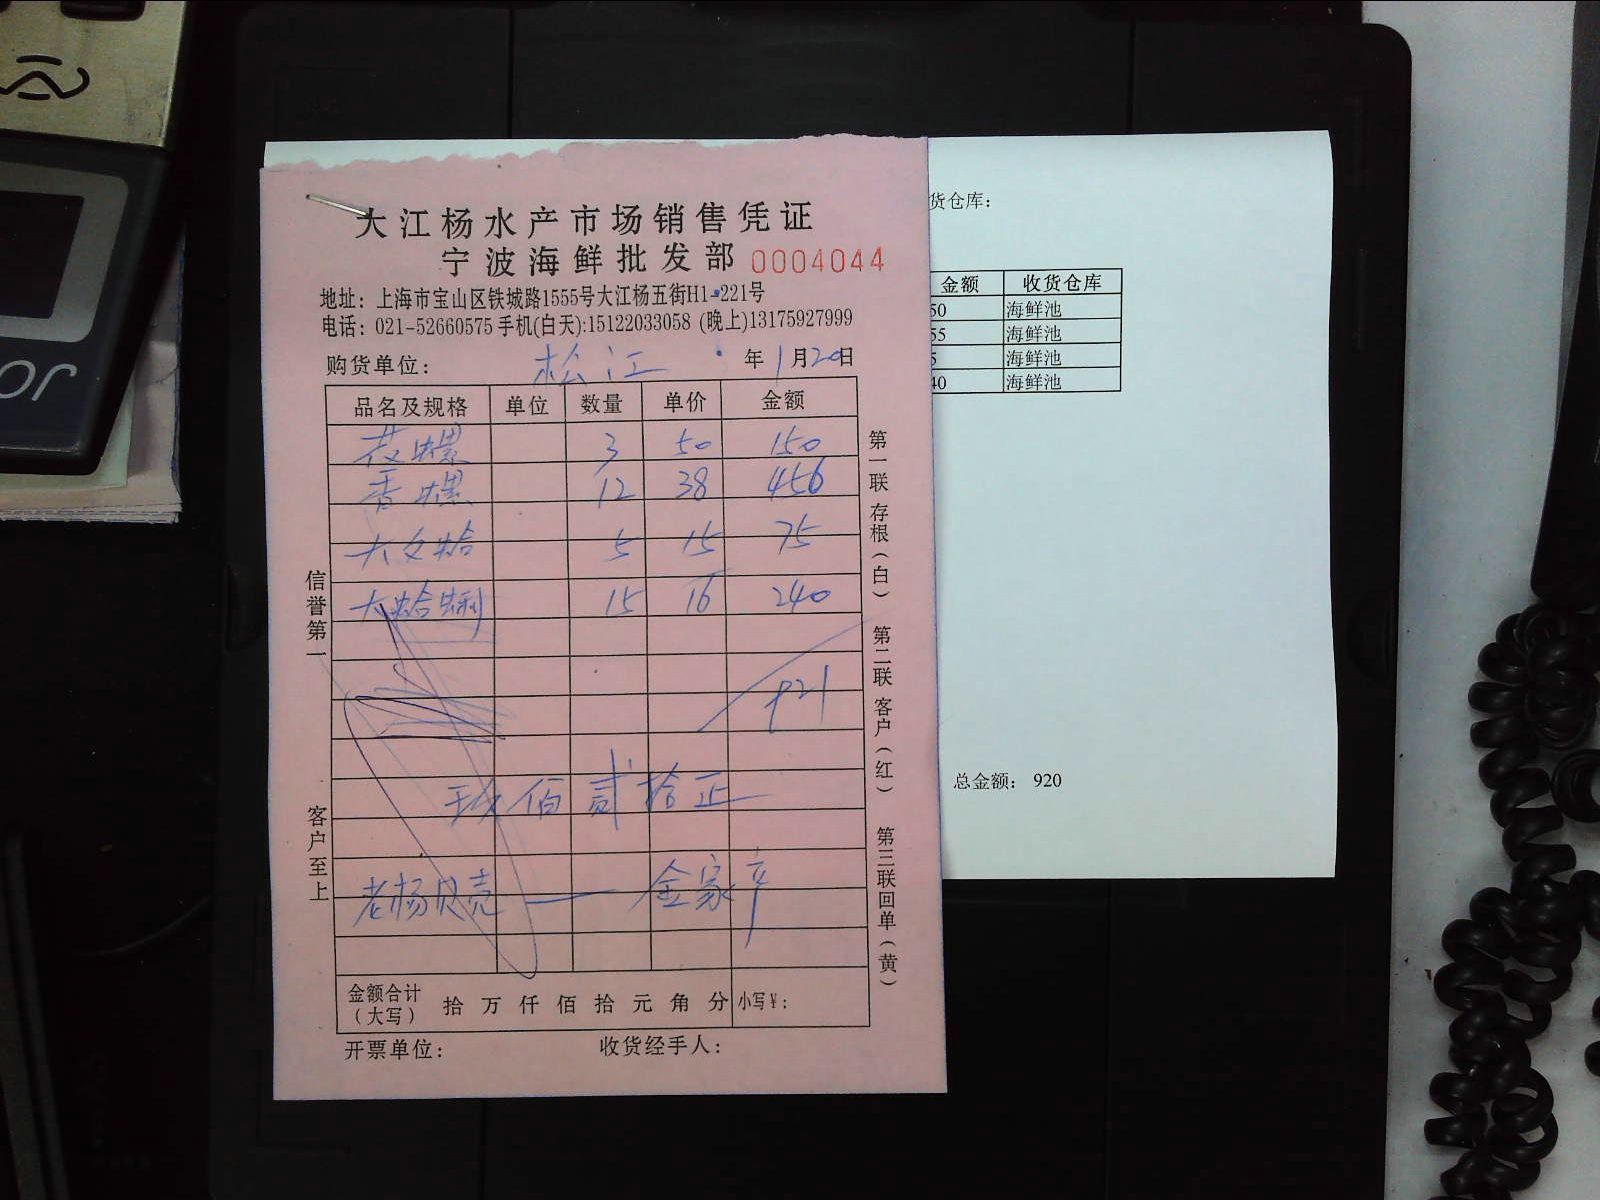 大江杨水产市场销售凭证
宁波海鲜批发部 0004044
地址：上海市宝山区铁城路1555号大江杨五街H1-221号
电话：021-52660575 手机(白天):15122033058 (晚上)13175927999
购货单位： 松江 年 1月20日
品名及规格 单位 数量 单价 金额
花螺 3 50 150
香螺 12 38 456
大文蛤 5 15 75
大蛤蜊 15 16 240
921
玖佰贰拾正
老杨贝壳 — 金家
金额合计（大写） 拾 万 仟 佰 拾 元 角 分 小写￥：
开票单位： 收货经手人：
信誉第一 客户至上
第一联存根（白） 第二联客户（红） 第三联回单（黄）
货仓库：
金额 收货仓库
50 海鲜池
55 海鲜池
5 海鲜池
40 海鲜池
总金额： 920